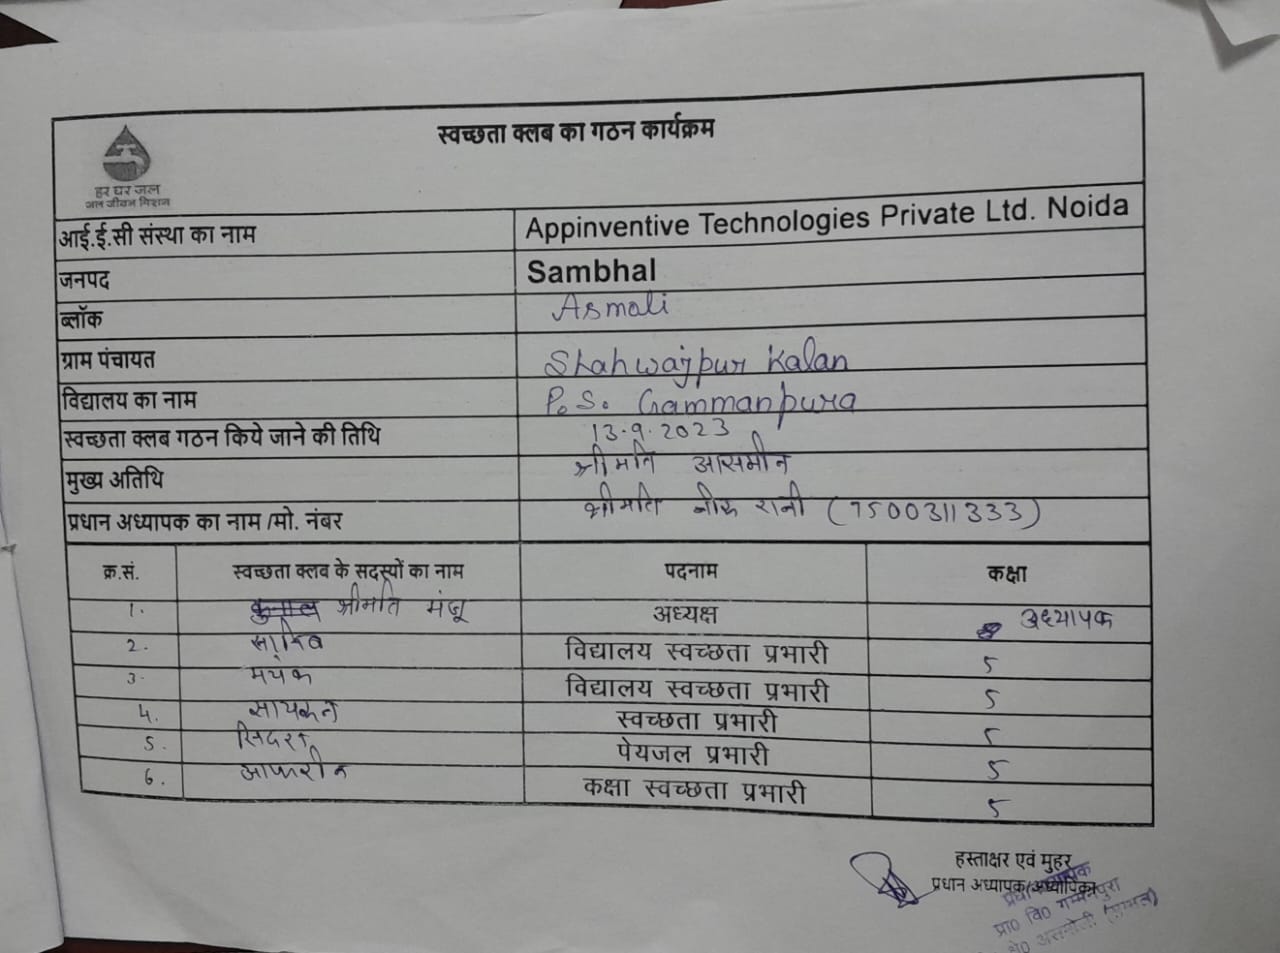 स्वच्छता क्लब का गठन कार्यक्रम
हर घर जल
जल जीवन मिशन
आई.ई.सी संस्था का नाम Appinventive Technologies Private Ltd. Noida
जनपद Sambhal
ब्लॉक Asmoli
ग्राम पंचायत Shahwajpur Kalan
विद्यालय का नाम P.S. Gammanpura
स्वच्छता क्लब गठन किये जाने की तिथि 13.9.2023
मुख्य अतिथि श्रीमति आसमीन
प्रधान अध्यापक का नाम /मो. नंबर श्रीमति नीरू रानी (7500311333)
क्र.सं. स्वच्छता क्लब के सदस्यों का नाम पदनाम कक्षा
1. श्रीमति मंजू अध्यक्ष अध्यापक
2. विद्यालय स्वच्छता प्रभारी 5
3. मयंक विद्यालय स्वच्छता प्रभारी 5
4. स्वच्छता प्रभारी 5
5. पेयजल प्रभारी 5
6. आफरीन कक्षा स्वच्छता प्रभारी 5
हस्ताक्षर एवं मुहर
प्रधान अध्यापक/अध्यापिका
प्रा० वि० गम्मनपुरा